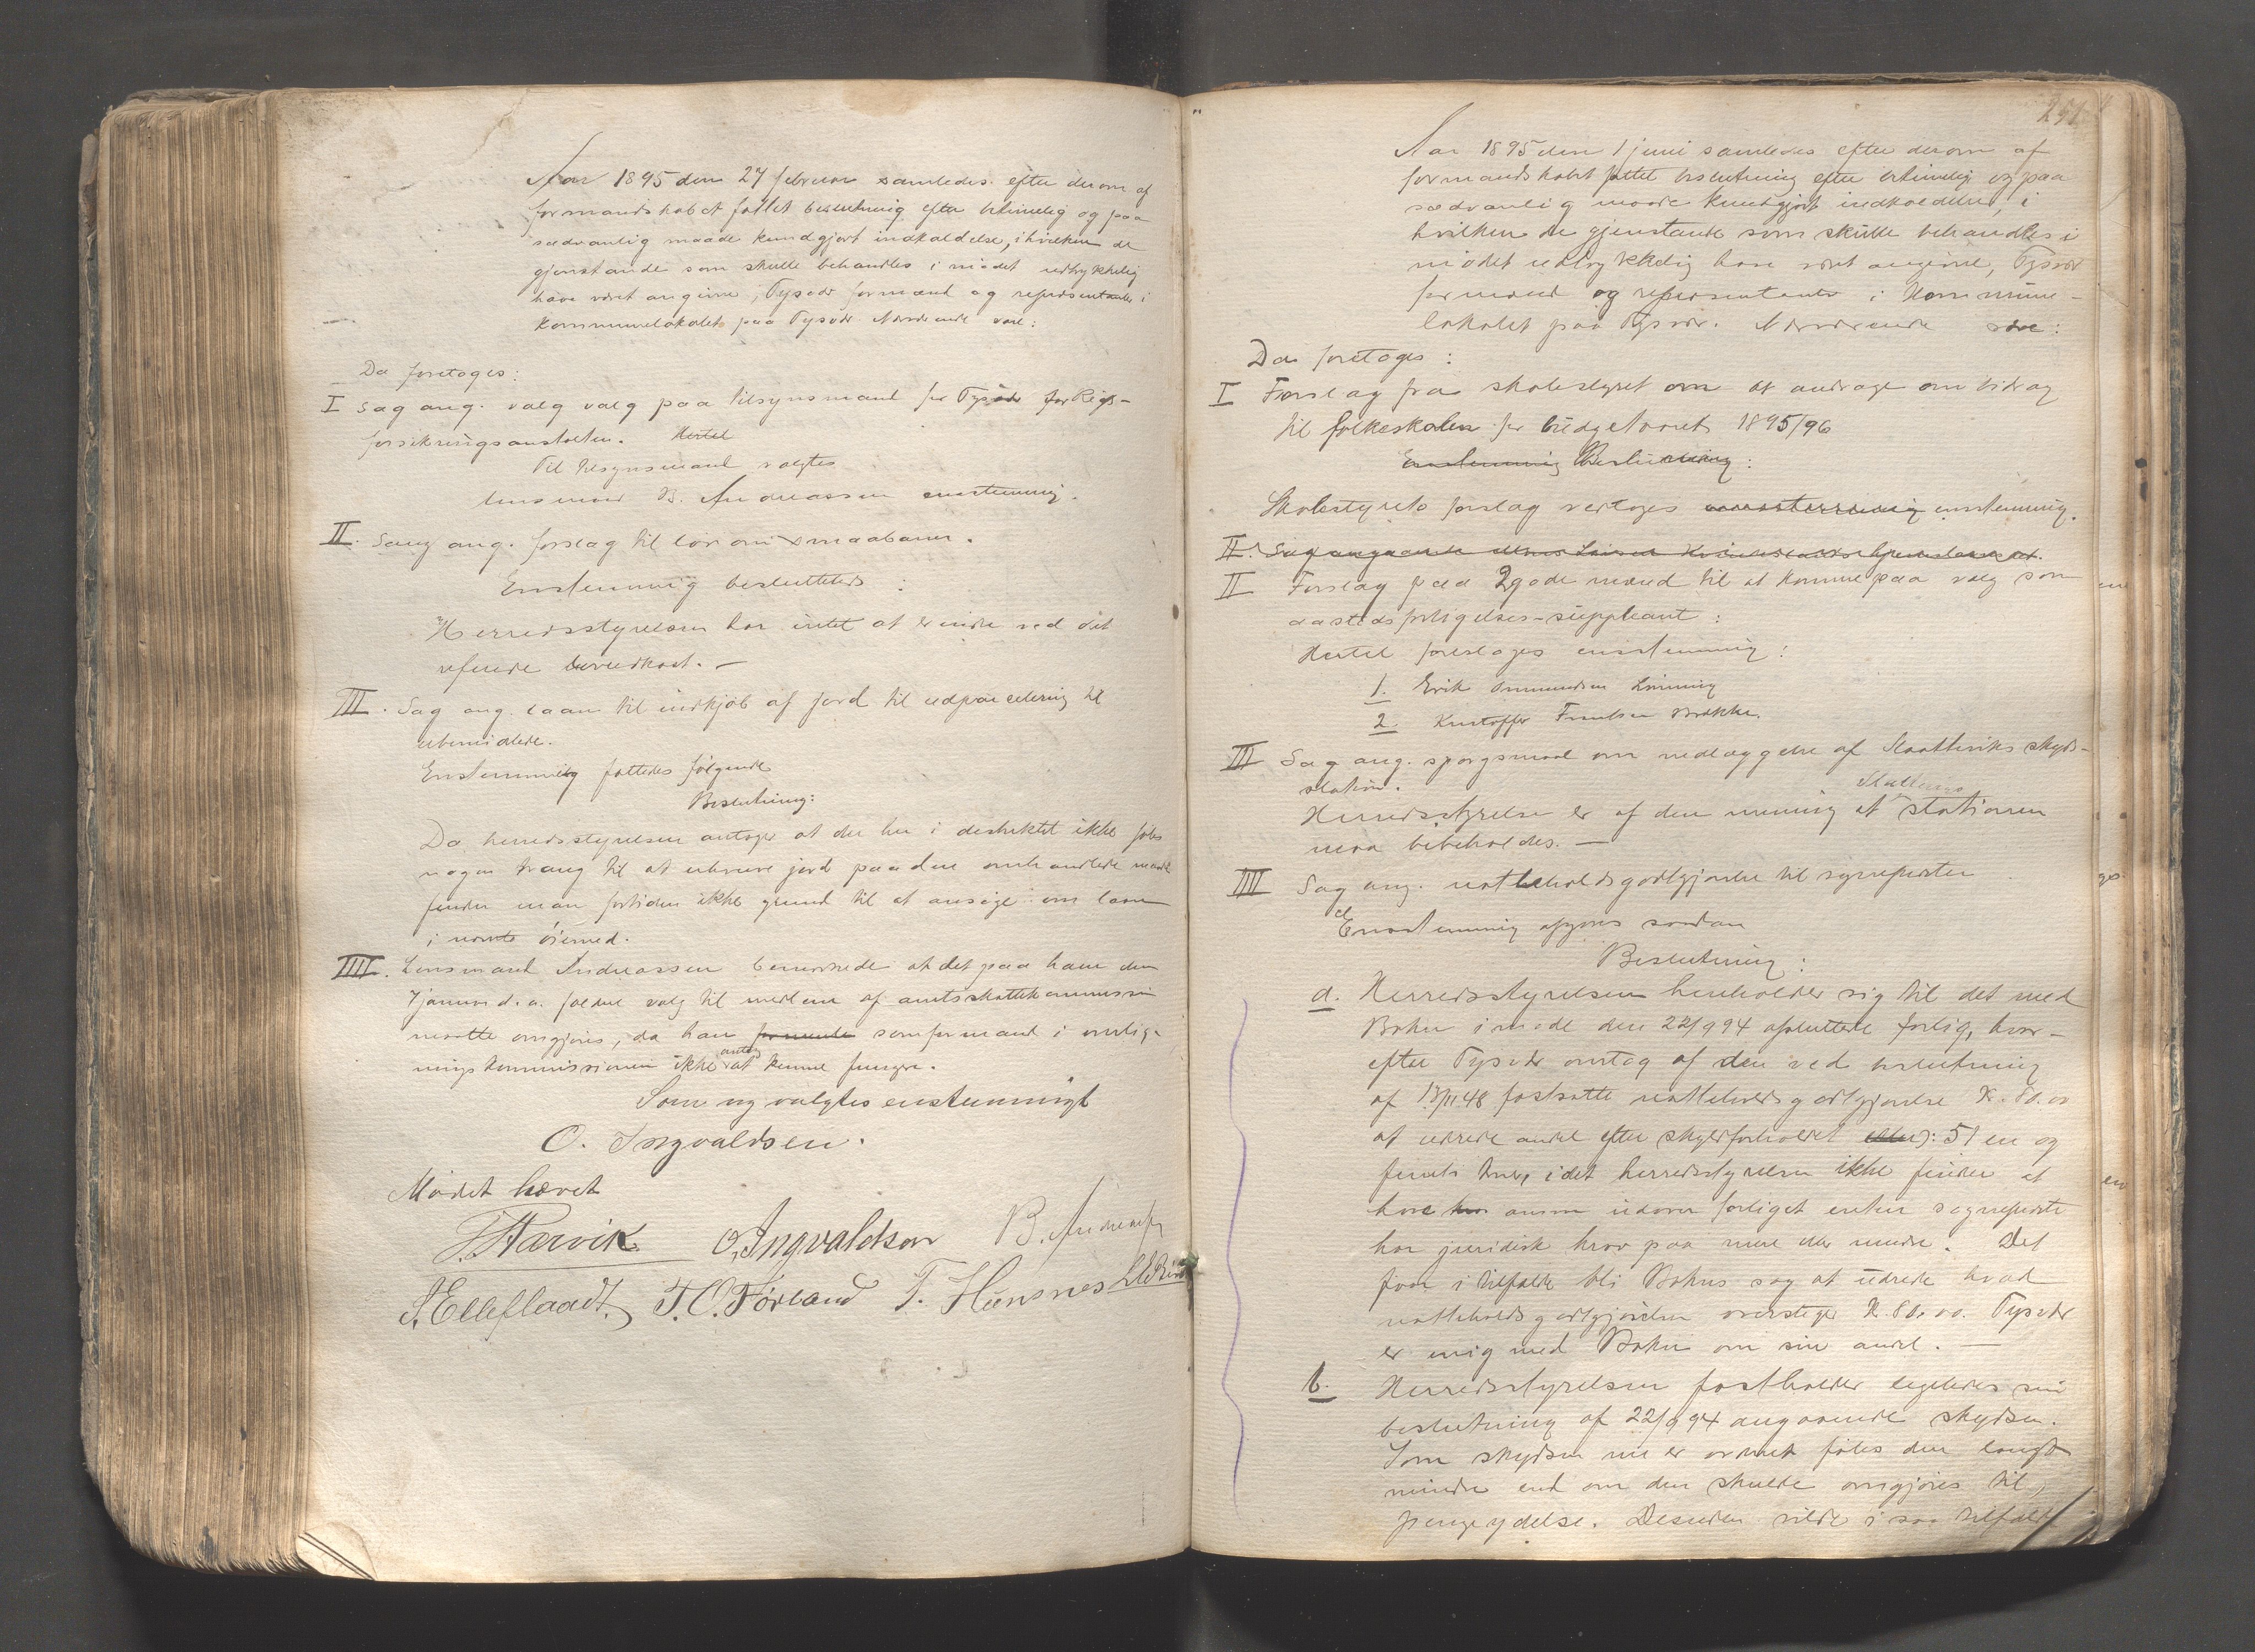 Aar 1895 den 27 februar samledes efter derom af
formandskabet fattet beslutning efter betimelig og paa
sædvanlig maade kundgjort indkaldelse, i hvilken de
gjenstande som skulle behandles i mødet udtrykkelig
have været angivne, Tysvær formænd og repræsentanter i
kommunelokalet paa Tysvær Nærværende vare:
Da foretoges:
I Sag ang. valg valg paa tilsynsmand for Tysvær for Rigs-
forsikringsanstalten. Hertil
Til tilsynsmand valgtes
lensmand B. Andreassen enstemmig.
II. Sag ang. forslag til lov om smaabaner.
Enstemmig besluttedes:
"Herredsstyrelsen har intet at erindre ved det
lovudkast. —
III. Sag ang. laan til indkjøb af jord til udparcelering til
ubemidlede.
Enstemmig fattedes følgende
Beslutning:
Da herredsstyrelsen antager at der her i distriktet ikke føles
nogen trang til at erhverve jord paa den omhandlede maade
finder man fortiden ikke grund til at ansøge om laan
i nævnte øiemed.
IIII. Lensmand Andreassen bemærkede at det paa ham den
7 januar d. a. faldne valg til medlem af amtsskattekommissio
maatte omgjøres, da han som formand i anlig-
ningskommissionen ikke antog at kunne fungere.
Som ny valgtes enstemmigt
O. Ingvaldsen.
Mødet hævet
O. Ingvaldsen B. Andreassen
Elleflaadt. T. O. Førland T. Hunsnes
251
Aar 1895 den 1 juni samledes efter derom af
formandskabet fattet beslutning efter betimelig og paa
sædvanlig maade kundgjort indkaldelse, i
hvilken de gjenstande som skulle behandles i
mødet udtrykkelig have været angivne, Tysvær
formænd og repræsentanter i Kommune-
lokalet paa Tysvær. Nærværende vare:
Da foretoges:
I Forslag fra skolestyret om at andrage om bidrag
til folkeskolen for budgetaaret 1895/96
Enstemmig Beslutning:
Skolestyrets forslag vedtages enstemmig enstemmig.
II. Sag angaaende
II Forslag paa 2 gode mænd til at komme paa valg som
aastedsforligelses-suppleant:
Hertil foreslages enstemmig:
1. Erik Ommundsen
2. Kristoffer
III Sag ang. spørgsmaal om nedlæggelse af Slaattevik skyds-
station.
Herredsstyrelse er af den mening at Slattevigs stationen
maa bibeholdes. —
IIII Sag ang. natteholdsgodtgjørelse til sogneprester
Enstemmig afgaves saadan
Beslutning:
a. Herredsstyrelsen henholder sig til det med
Bokn i møde den 22/9 94 afsluttede forlig, hvor-
efter Tysvær antog af den ved beslutning
af 13/11 48 fastsatte natteholdsgodtgjørelse K. 80.00
at udrede andel efter skyldforholdet 51 en og
femti kroner, idet herredsstyrelsen ikke finder at
have ansvar udover forliget enten sognepresten
har juridisk krav paa mere eller mindre. Det
faar i tilfælde bli Bokns sag at udrede hvad
natteholdsgodtgjørelsen overstiger K. 80.00. Tysvær
er enig med Bokn om sin andel. —
b. Herredsstyrelsen fastholder ligeledes sin
beslutning af 22/9 94 angaaende skydsen.
Som skydsen nu er ordnet føles den langt
mindre end om den skulde omgjøres til
pengeydelse. Desuden vilde i saa tilfælde